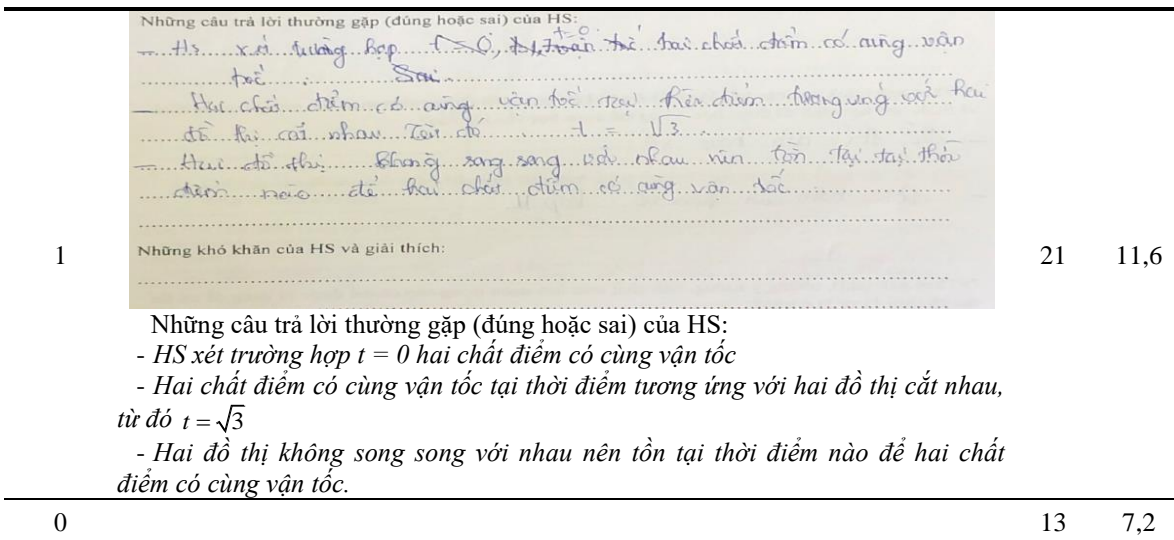 Những câu trả lời thường gặp (đúng hoặc sai) của HS:
- Hs xét trường hợp t = 0, t = 0 hai chất điểm có cùng vận
tốc. Sai.
- Hai chất điểm có cùng vận tốc tại thời điểm tương ứng với hai
đồ thị cắt nhau. Từ đó t = √3
- Hai đồ thị không song song với nhau nên tồn tại tại thời
điểm nào để hai chất điểm có cùng vận tốc
Những khó khăn của HS và giải thích:
1 21 11,6
Những câu trả lời thường gặp (đúng hoặc sai) của HS:
- HS xét trường hợp t = 0 hai chất điểm có cùng vận tốc
- Hai chất điểm có cùng vận tốc tại thời điểm tương ứng với hai đồ thị cắt nhau,
từ đó t = √3
- Hai đồ thị không song song với nhau nên tồn tại thời điểm nào để hai chất
điểm có cùng vận tốc.
0 13 7,2